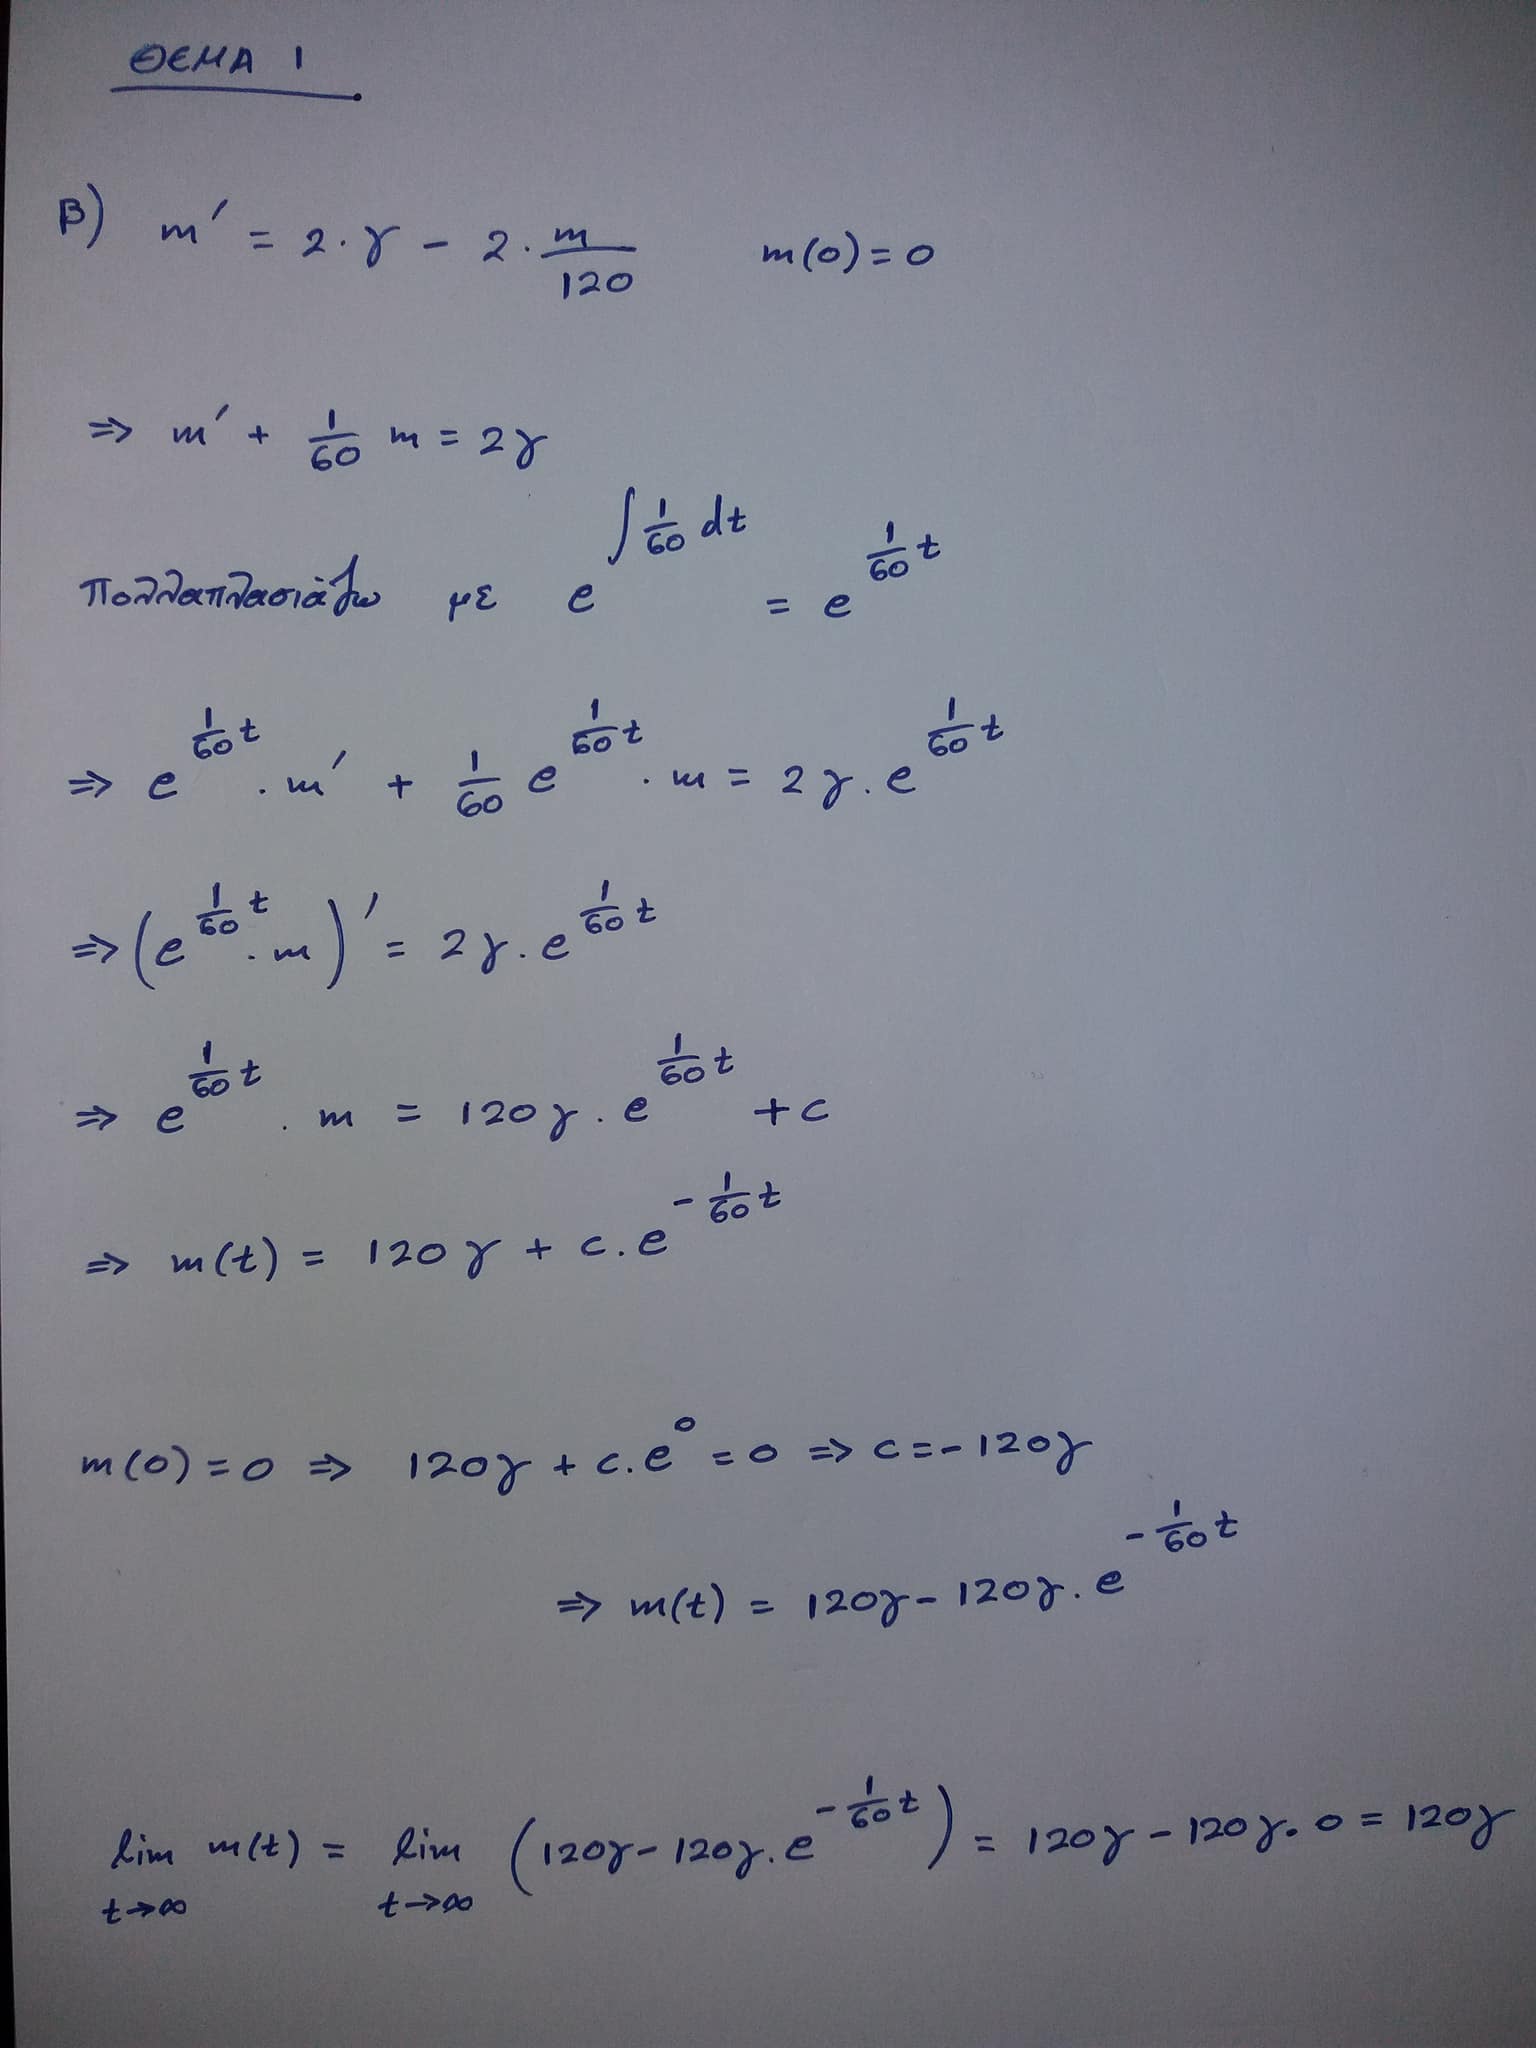 ΘΕΜΑ 1
B) m' = 2·γ - 2·m/120 m(0)=0
⇒ m' + 1/60 m = 2γ
Πολλαπλασιάζω με e^(∫1/60 dt) = e^(1/60 t)
⇒ e^(1/60 t) · m' + 1/60 e^(1/60 t) · m = 2γ·e^(1/60 t)
⇒ (e^(1/60 t) · m)' = 2γ·e^(1/60 t)
⇒ e^(1/60 t) · m = 120γ·e^(1/60 t) + c
⇒ m(t) = 120γ + c·e^(-1/60 t)
m(0)=0 ⇒ 120γ + c·e^0 = 0 ⇒ c=-120γ
⇒ m(t) = 120γ - 120γ·e^(-1/60 t)
lim t→∞ m(t) = lim t→∞ (120γ - 120γ·e^(-1/60 t)) = 120γ - 120γ·0 = 120γ